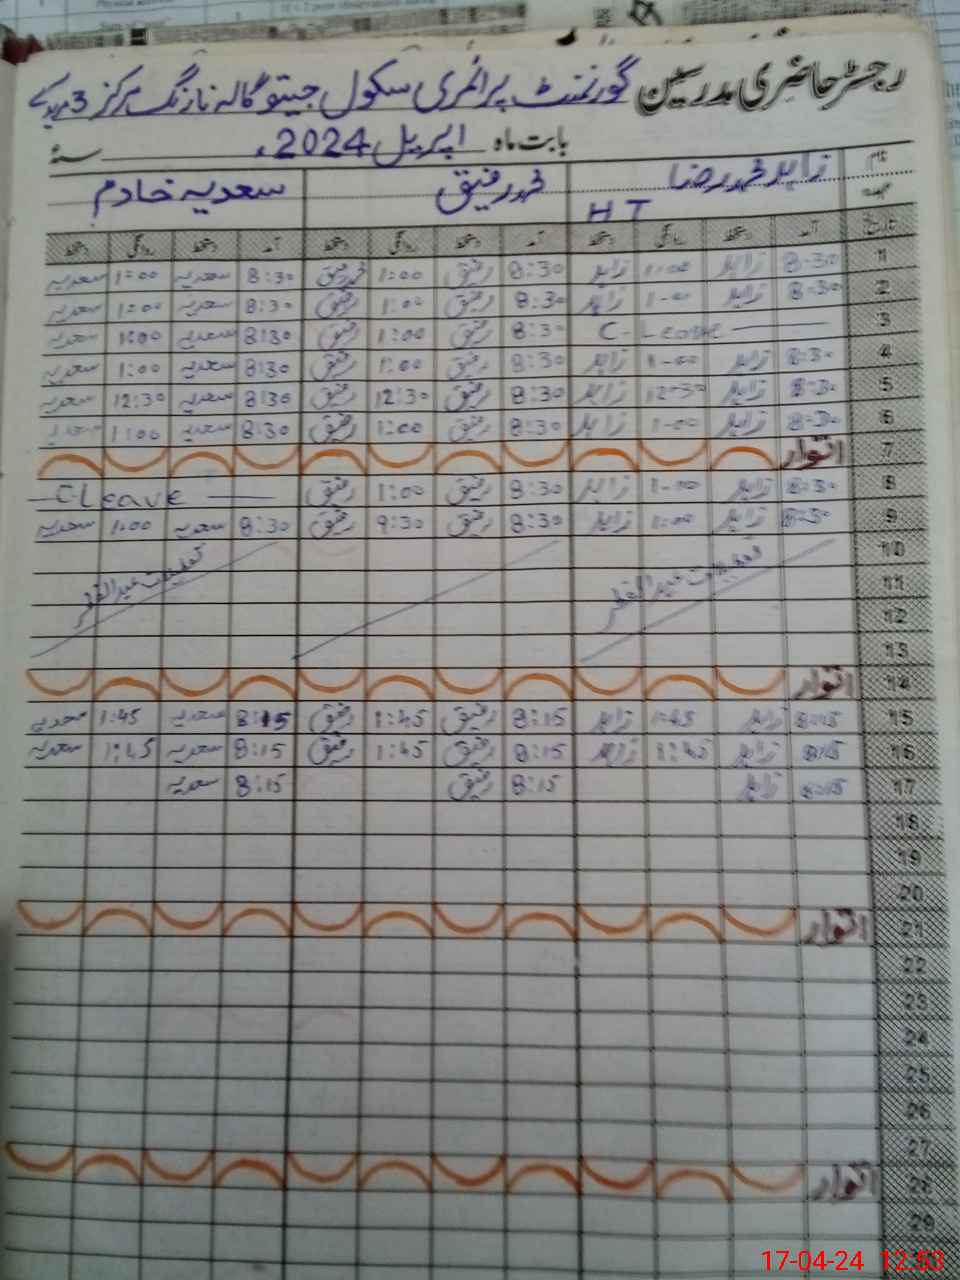 رجسٹر حاضری مدرسین گورنمنٹ پرائمری سکول جیتو گالہ نارنگ مرکز 3
بابت ماہ اپریل 2024ء سنۂ
نام زاہد محمد رضا محمد رفیق سعدیہ خادم
عہدہ H T
تاریخ آمد دستخط روانگی دستخط آمد دستخط روانگی دستخط آمد دستخط روانگی دستخط
1 8-30 زاہد 1-00 زاہد 8:30 رفیق 1:00 محمد رفیق 8:30 سعدیہ 1:00 سعدیہ
2 8-30 زاہد 1-00 زاہد 8:30 رفیق 1:00 رفیق 8:30 سعدیہ 1:00 سعدیہ
3 C-Leave 8:30 رفیق 1:00 رفیق 8:30 سعدیہ 1:00 سعدیہ
4 8-30 زاہد 1-00 زاہد 8:30 رفیق 1:00 رفیق 8:30 سعدیہ 1:00 سعدیہ
5 8-30 زاہد 12-30 زاہد 8:30 رفیق 12:30 رفیق 8:30 سعدیہ 12:30 سعدیہ
6 8-30 زاہد 1-00 زاہد 8:30 رفیق 1:00 رفیق 8:30 سعدیہ 1:00 سعدیہ
7 اتوار
8 8-30 زاہد 1-00 زاہد 8:30 رفیق 1:00 رفیق C Leave
9 8-30 زاہد 1:00 زاہد 8:30 رفیق 9:30 رفیق 8:30 سعدیہ 1:00 سعدیہ
10 تعطیلات عیدالفطر تعطیلات عیدالفطر
11
12
13
14 اتوار
15 8:15 زاہد 1:45 زاہد 8:15 رفیق 1:45 رفیق 8:15 سعدیہ 1:45 سعدیہ
16 8:15 زاہد 1:45 زاہد 8:15 رفیق 1:45 رفیق 8:15 سعدیہ 1:45 سعدیہ
17 8:15 زاہد 8:15 رفیق 8:15 سعدیہ
18
19
20
21 اتوار
22
23
24
25
26
27
28 اتوار
29
17-04-24 12:53